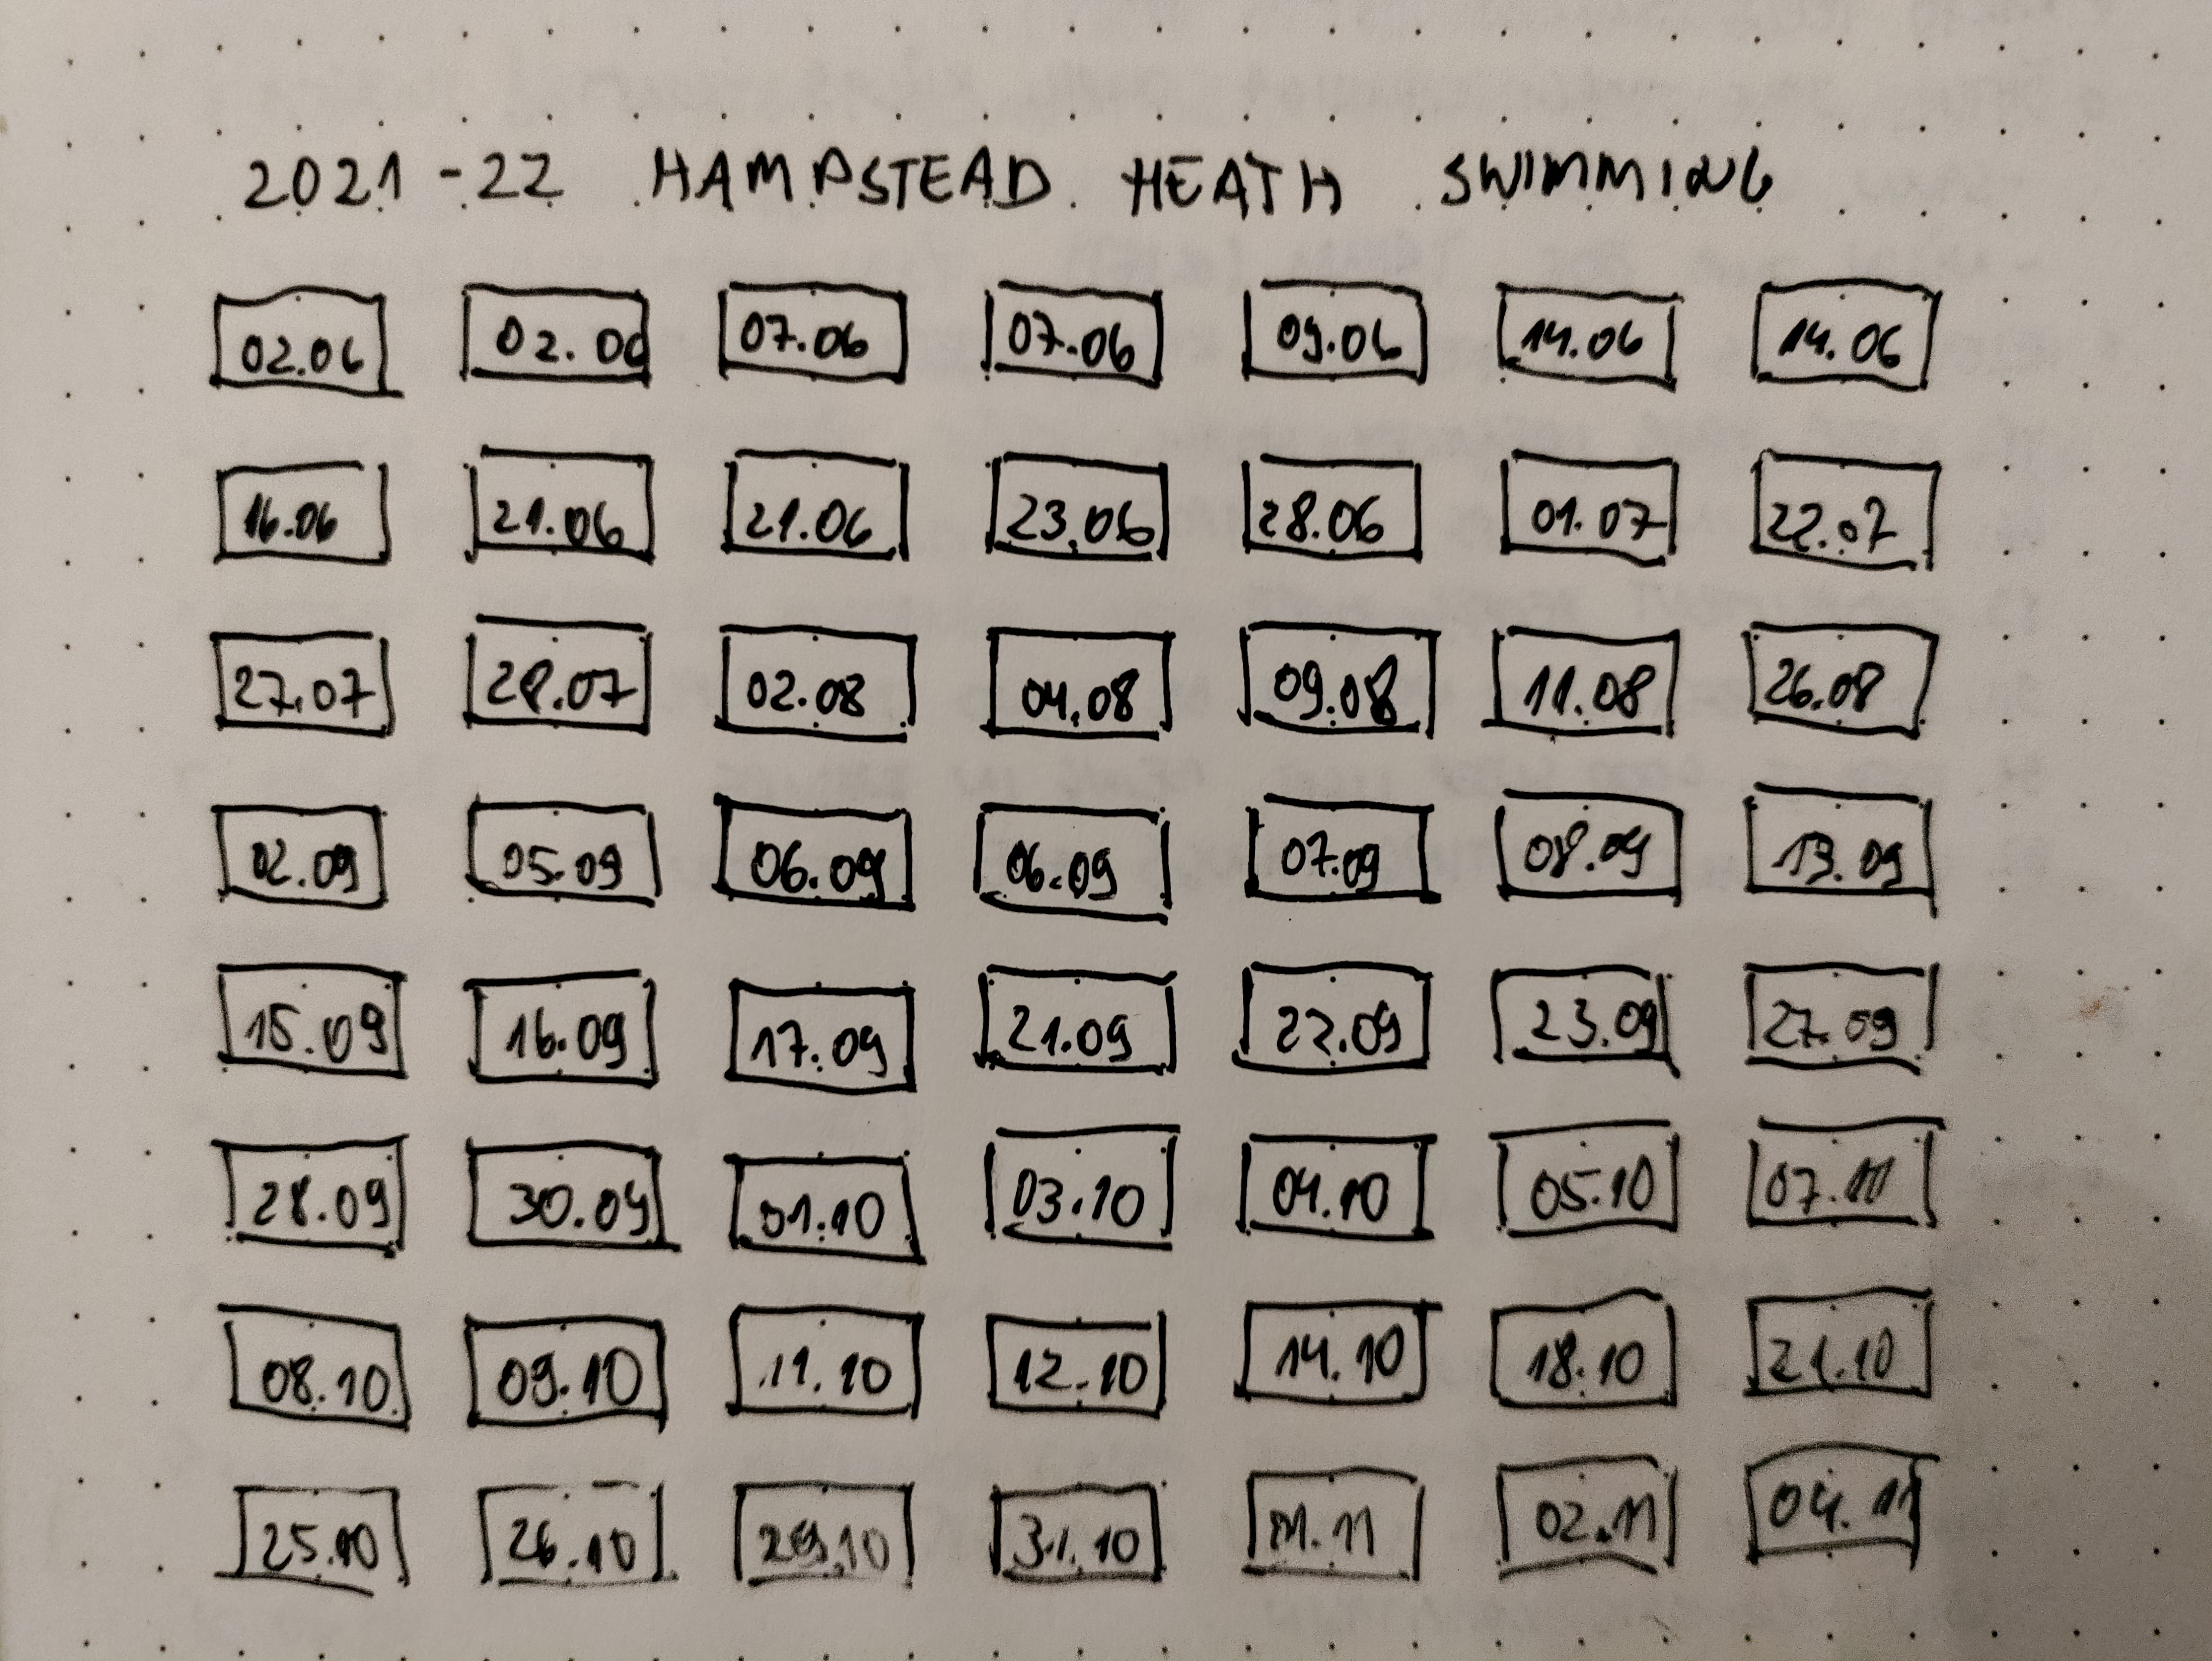 2021-22 HAMPSTEAD HEATH SWIMMING
02.06 02.06 07.06 07.06 09.06 14.06 14.06
16.06 21.06 21.06 23.06 28.06 01.07 22.07
27.07 28.07 02.08 04.08 09.08 11.08 26.08
02.09 05.09 06.09 06.09 07.09 08.09 13.09
15.09 16.09 17.09 21.09 22.09 23.09 27.09
28.09 30.09 01.10 03.10 04.10 05.10 07.10
08.10 09.10 11.10 12.10 14.10 18.10 21.10
25.10 26.10 31.10 01.11 02.11 04.11